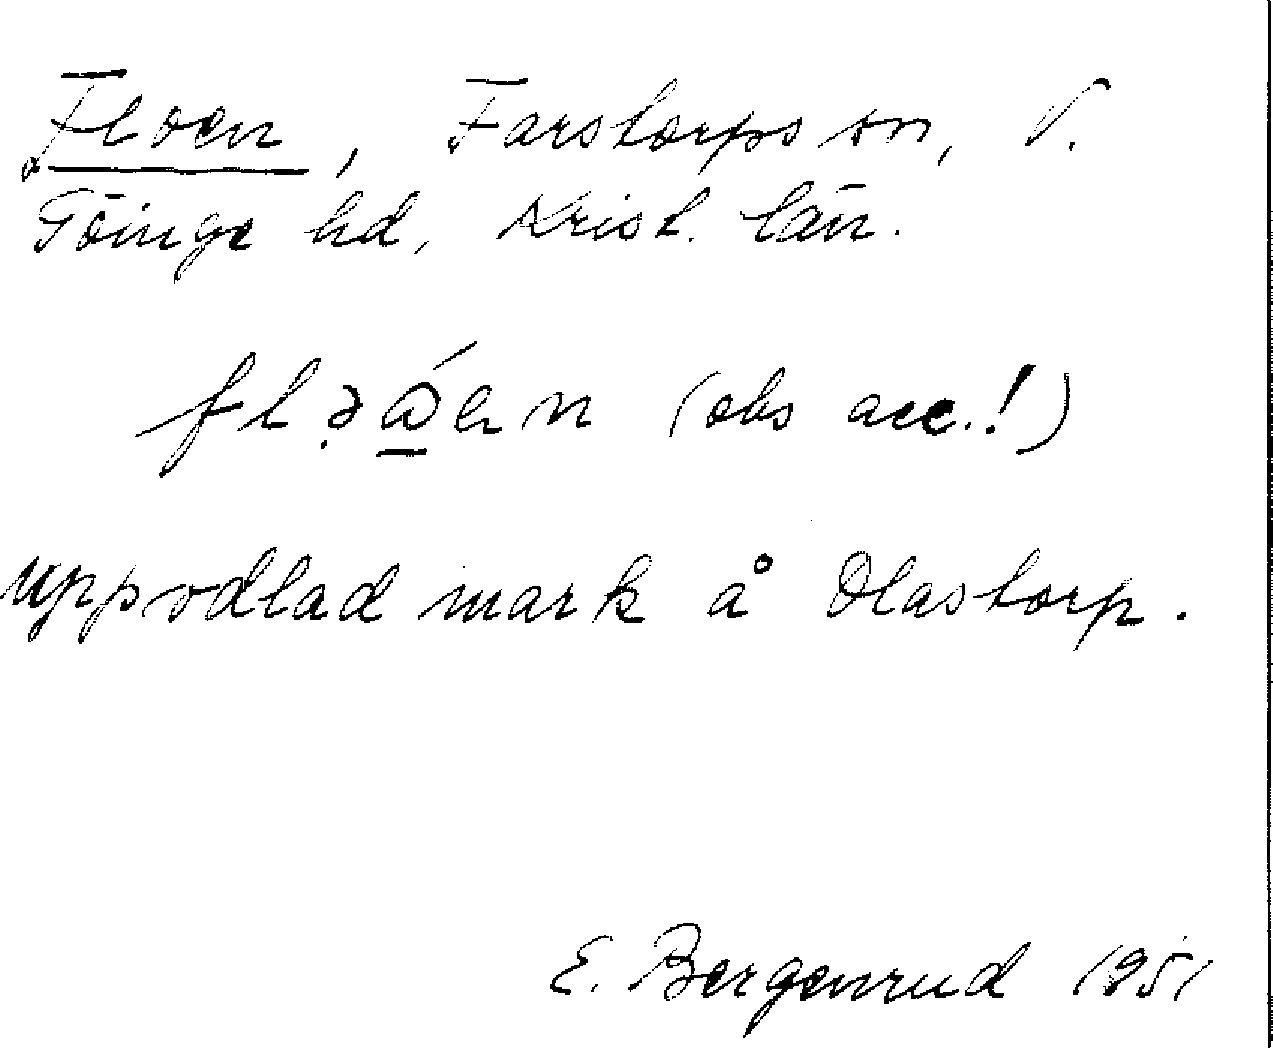 Floen, Farstorps sn, V.
Göinge hd, Krist. län.
(obs acc.!)
uppodlad mark å Olastorp.
E. Bergenrud 1951